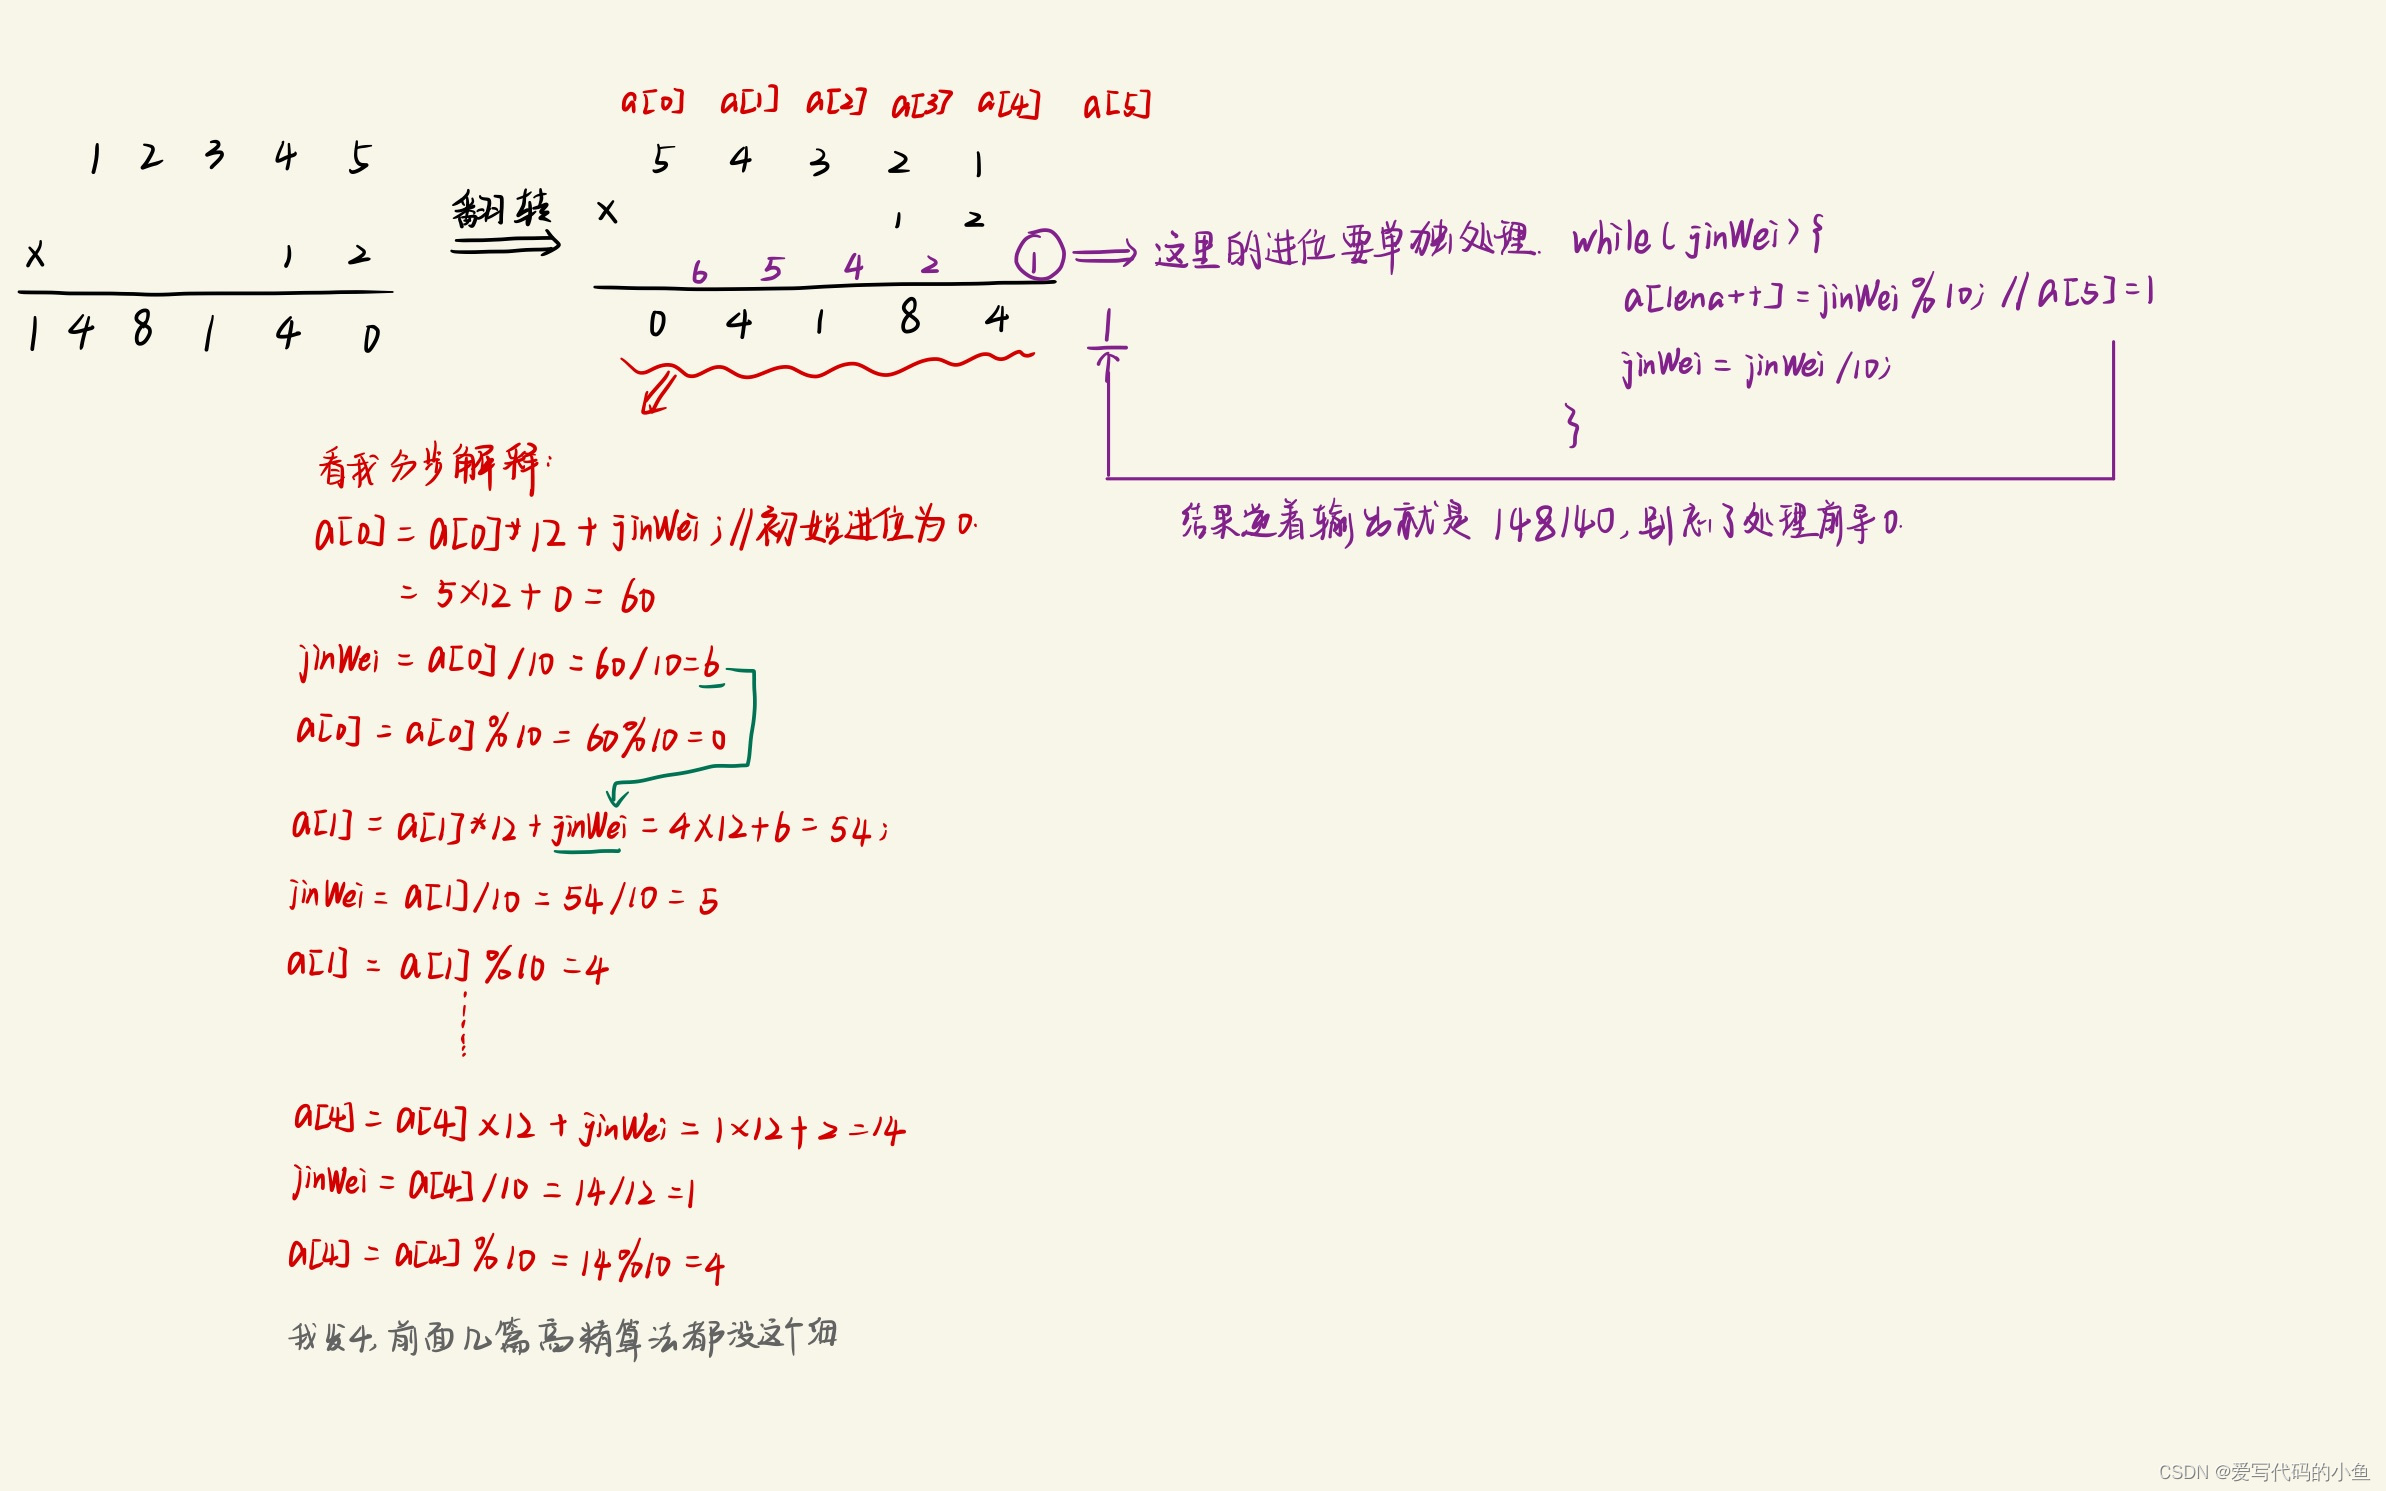 1 2 3 4 5
× 1 2
1 4 8 1 4 0
翻转
a[0] a[1] a[2] a[3] a[4] a[5]
5 4 3 2 1
× 1 2
6 5 4 2 1
0 4 1 8 4 1
这里的进位要单独处理. while(jinWei){
a[lena++]=jinWei%10; //a[5]=1
jinWei=jinWei/10;
}
结果逆着输出就是 148140,别忘了处理前导0.
看我分步解释:
a[0]=a[0]*12+jinWei;//初始进位为0.
=5×12+0=60
jinWei=a[0]/10=60/10=6
a[0]=a[0]%10=60%10=0
a[1]=a[1]*12+jinWei=4×12+6=54;
jinWei=a[1]/10=54/10=5
a[1]=a[1]%10=4
a[4]=a[4]×12+jinWei=1×12+2=14
jinWei=a[4]/10=14/12=1
a[4]=a[4]%10=14%10=4
我发4,前面几篇高精算法都没这个细
CSDN @爱写代码的小鱼